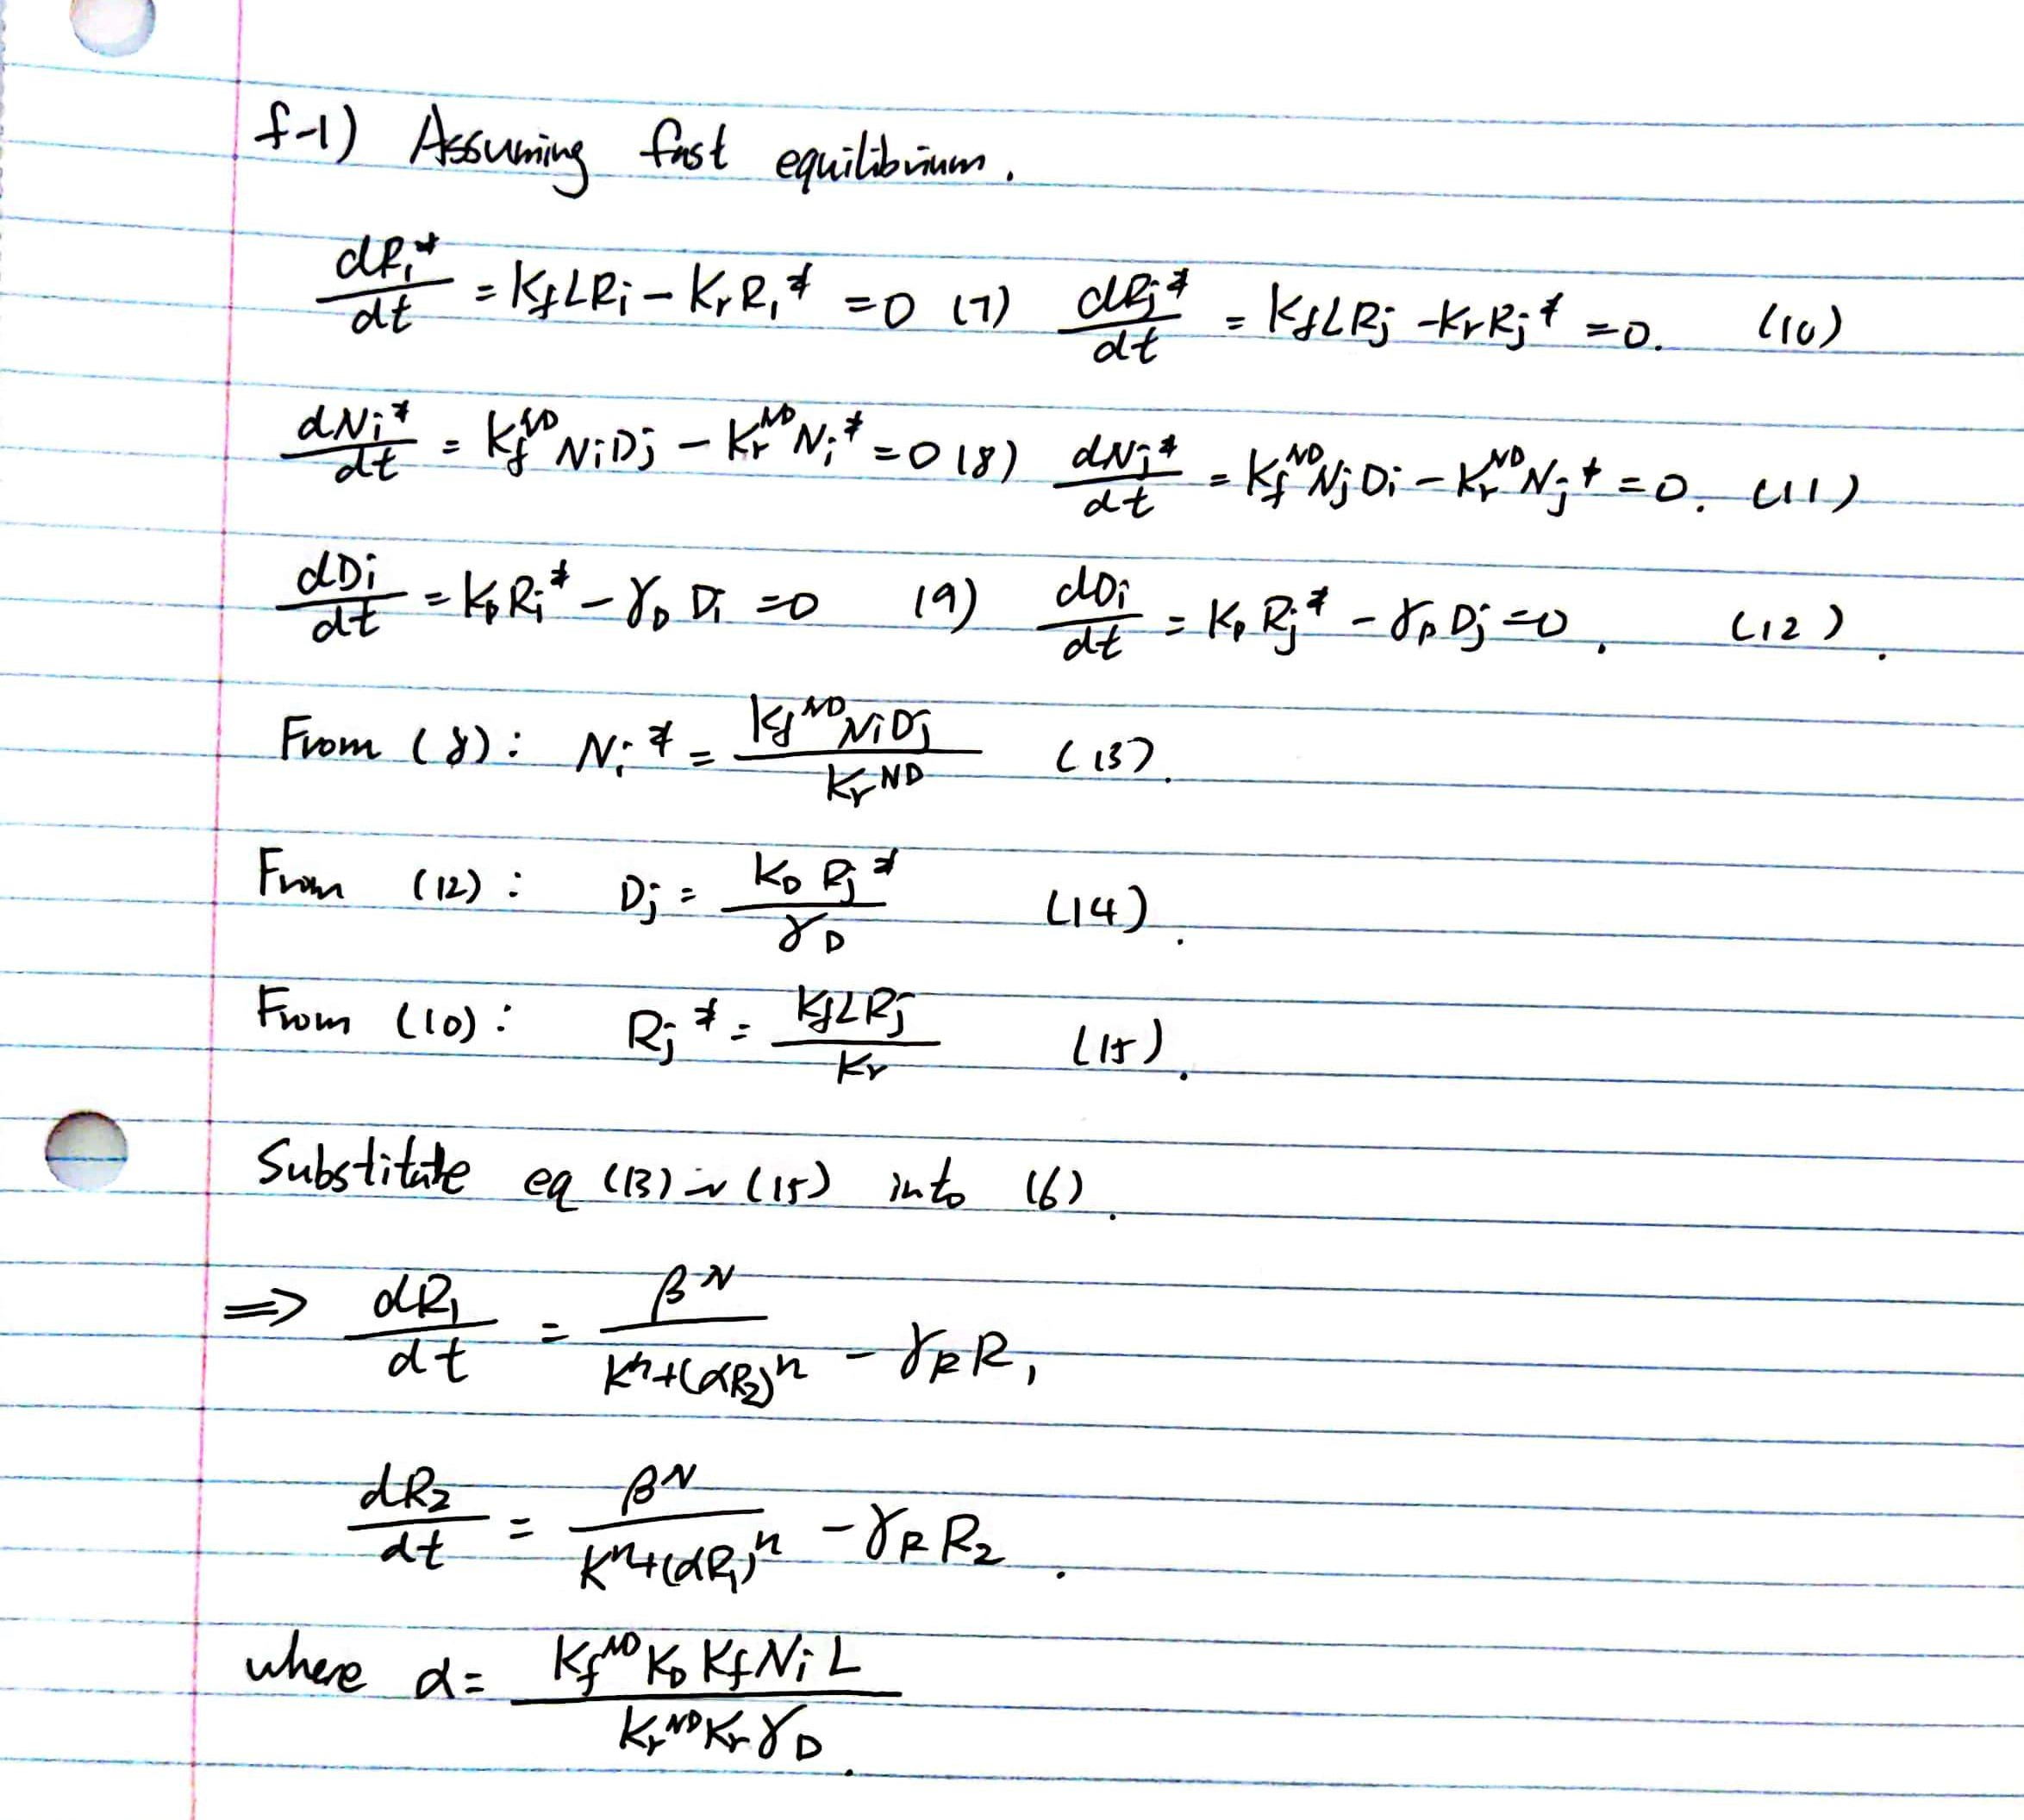 f-1) Assuming fast equilibrium.
dR₁*/dt = K_f L R_i − K_r R₁* = 0 (7) dR_j*/dt = K_f L R_j − K_r R_j* = 0. (10)
dN_i*/dt = K_f^ND N_i D_j − K_r^ND N_i* = 0 (8) dN_j*/dt = K_f^ND N_j D_i − K_r^ND N_j* = 0. (11)
dD_i/dt = K_D R_i* − γ_D D_i = 0 (9) dD_i/dt = K_D R_j* − γ_D D_j = 0. (12).
From (8): N_i* = K_f^ND N_i D_j / K_r^ND (13).
From (12): D_j = K_D R_j* / γ_D (14).
From (10): R_j* = K_f L R_j / K_r (15).
Substitute eq (13) ~ (15) into (6).
⇒ dR₁/dt = β^N / (K^n + (αR₂)^n) − γ_R R₁
dR₂/dt = β^N / (K^n + (αR₁)^n) − γ_R R₂.
where α = K_f^ND K_D K_f N_i L / (K_r^ND K_r γ_D).